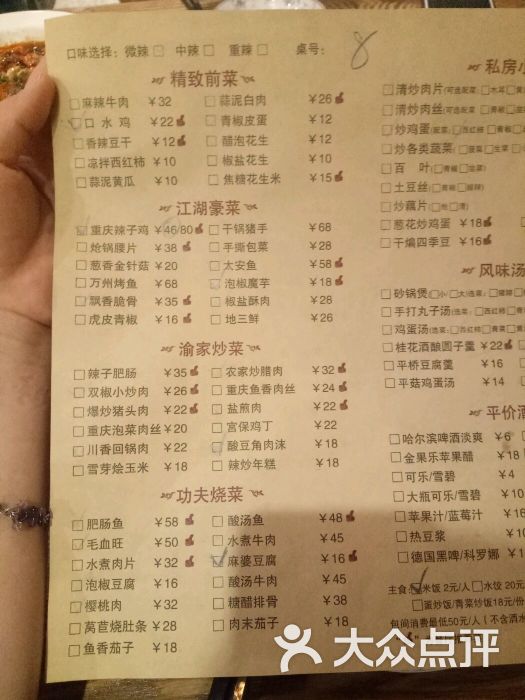 口味选择：微辣□ 中辣□ 重辣□ 桌号： 8
精致前菜
□麻辣牛肉 ¥32
□口水鸡 ¥22
□香辣豆干 ¥12
□凉拌西红柿 ¥10
□蒜泥黄瓜 ¥10
□蒜泥白肉 ¥26
□青椒皮蛋 ¥12
□醋泡花生 ¥12
□椒盐花生 ¥10
□焦糖花生米 ¥15
江湖豪菜
□重庆辣子鸡 ¥46/80
□炝锅腰片 ¥38
□葱香金针菇 ¥20
□万州烤鱼 ¥68
□飘香脆骨 ¥35
□虎皮青椒 ¥16
□干锅猪手 ¥68
□手撕包菜 ¥28
□太安鱼 ¥58
□泡椒魔芋 ¥18
□椒盐酥肉 ¥28
□地三鲜 ¥26
渝家炒菜
□辣子肥肠 ¥35
□双椒小炒肉 ¥26
□爆炒猪头肉 ¥22
□重庆泡菜肉丝 ¥20
□川香回锅肉 ¥22
□雪芽烩玉米 ¥18
□农家炒腊肉 ¥32
□重庆鱼香肉丝 ¥24
□盐煎肉 ¥22
□宫保鸡丁 ¥22
□酸豆角肉沫 ¥18
□辣炒年糕 ¥18
功夫烧菜
□肥肠鱼 ¥58
□毛血旺 ¥50
□水煮肉片 ¥32
□泡椒豆腐 ¥16
□樱桃肉 ¥32
□莴苣烧肚条 ¥28
□鱼香茄子 ¥18
□酸汤鱼 ¥48
□水煮牛肉 ¥45
□麻婆豆腐 ¥16
□酸汤牛肉 ¥45
□糖醋排骨 ¥38
□肉末茄子 ¥18
私房小
□清炒肉片(可选配菜：□木耳
□清炒肉丝(可选配菜：□青椒
□炒鸡蛋(配菜：□西红柿□青椒
□炒各类蔬菜(□菠菜□生菜
□百叶(□青椒□韭菜)
□土豆丝(□青椒□酸辣)
□炒藕片(□炝□清)
□葱花炒鸡蛋 ¥18
□干煸四季豆 ¥16
风味汤
□砂锅煲(□小□大)选菜：□猪脚
□手打丸子汤(选菜：□西红柿□青
□鸡蛋汤(选菜：□西红柿□青菜□紫
□桂花酒酿圆子羹 ¥22
□平桥豆腐羹 ¥16
□平菇鸡蛋汤 ¥14
平价酒
□哈尔滨啤酒淡爽 ¥6
□金果乐苹果醋 ¥18
□可乐/雪碧 ¥4
□大瓶可乐/雪碧 ¥10
□苹果汁/蓝莓汁 ¥
□热豆浆 ¥10
□德国黑啤/科罗娜
主食：□米饭 2元/人 □水饺 20元
□蛋炒饭/青菜炒饭18元/份
包间消费最低50元/人（不含酒水
大众点评